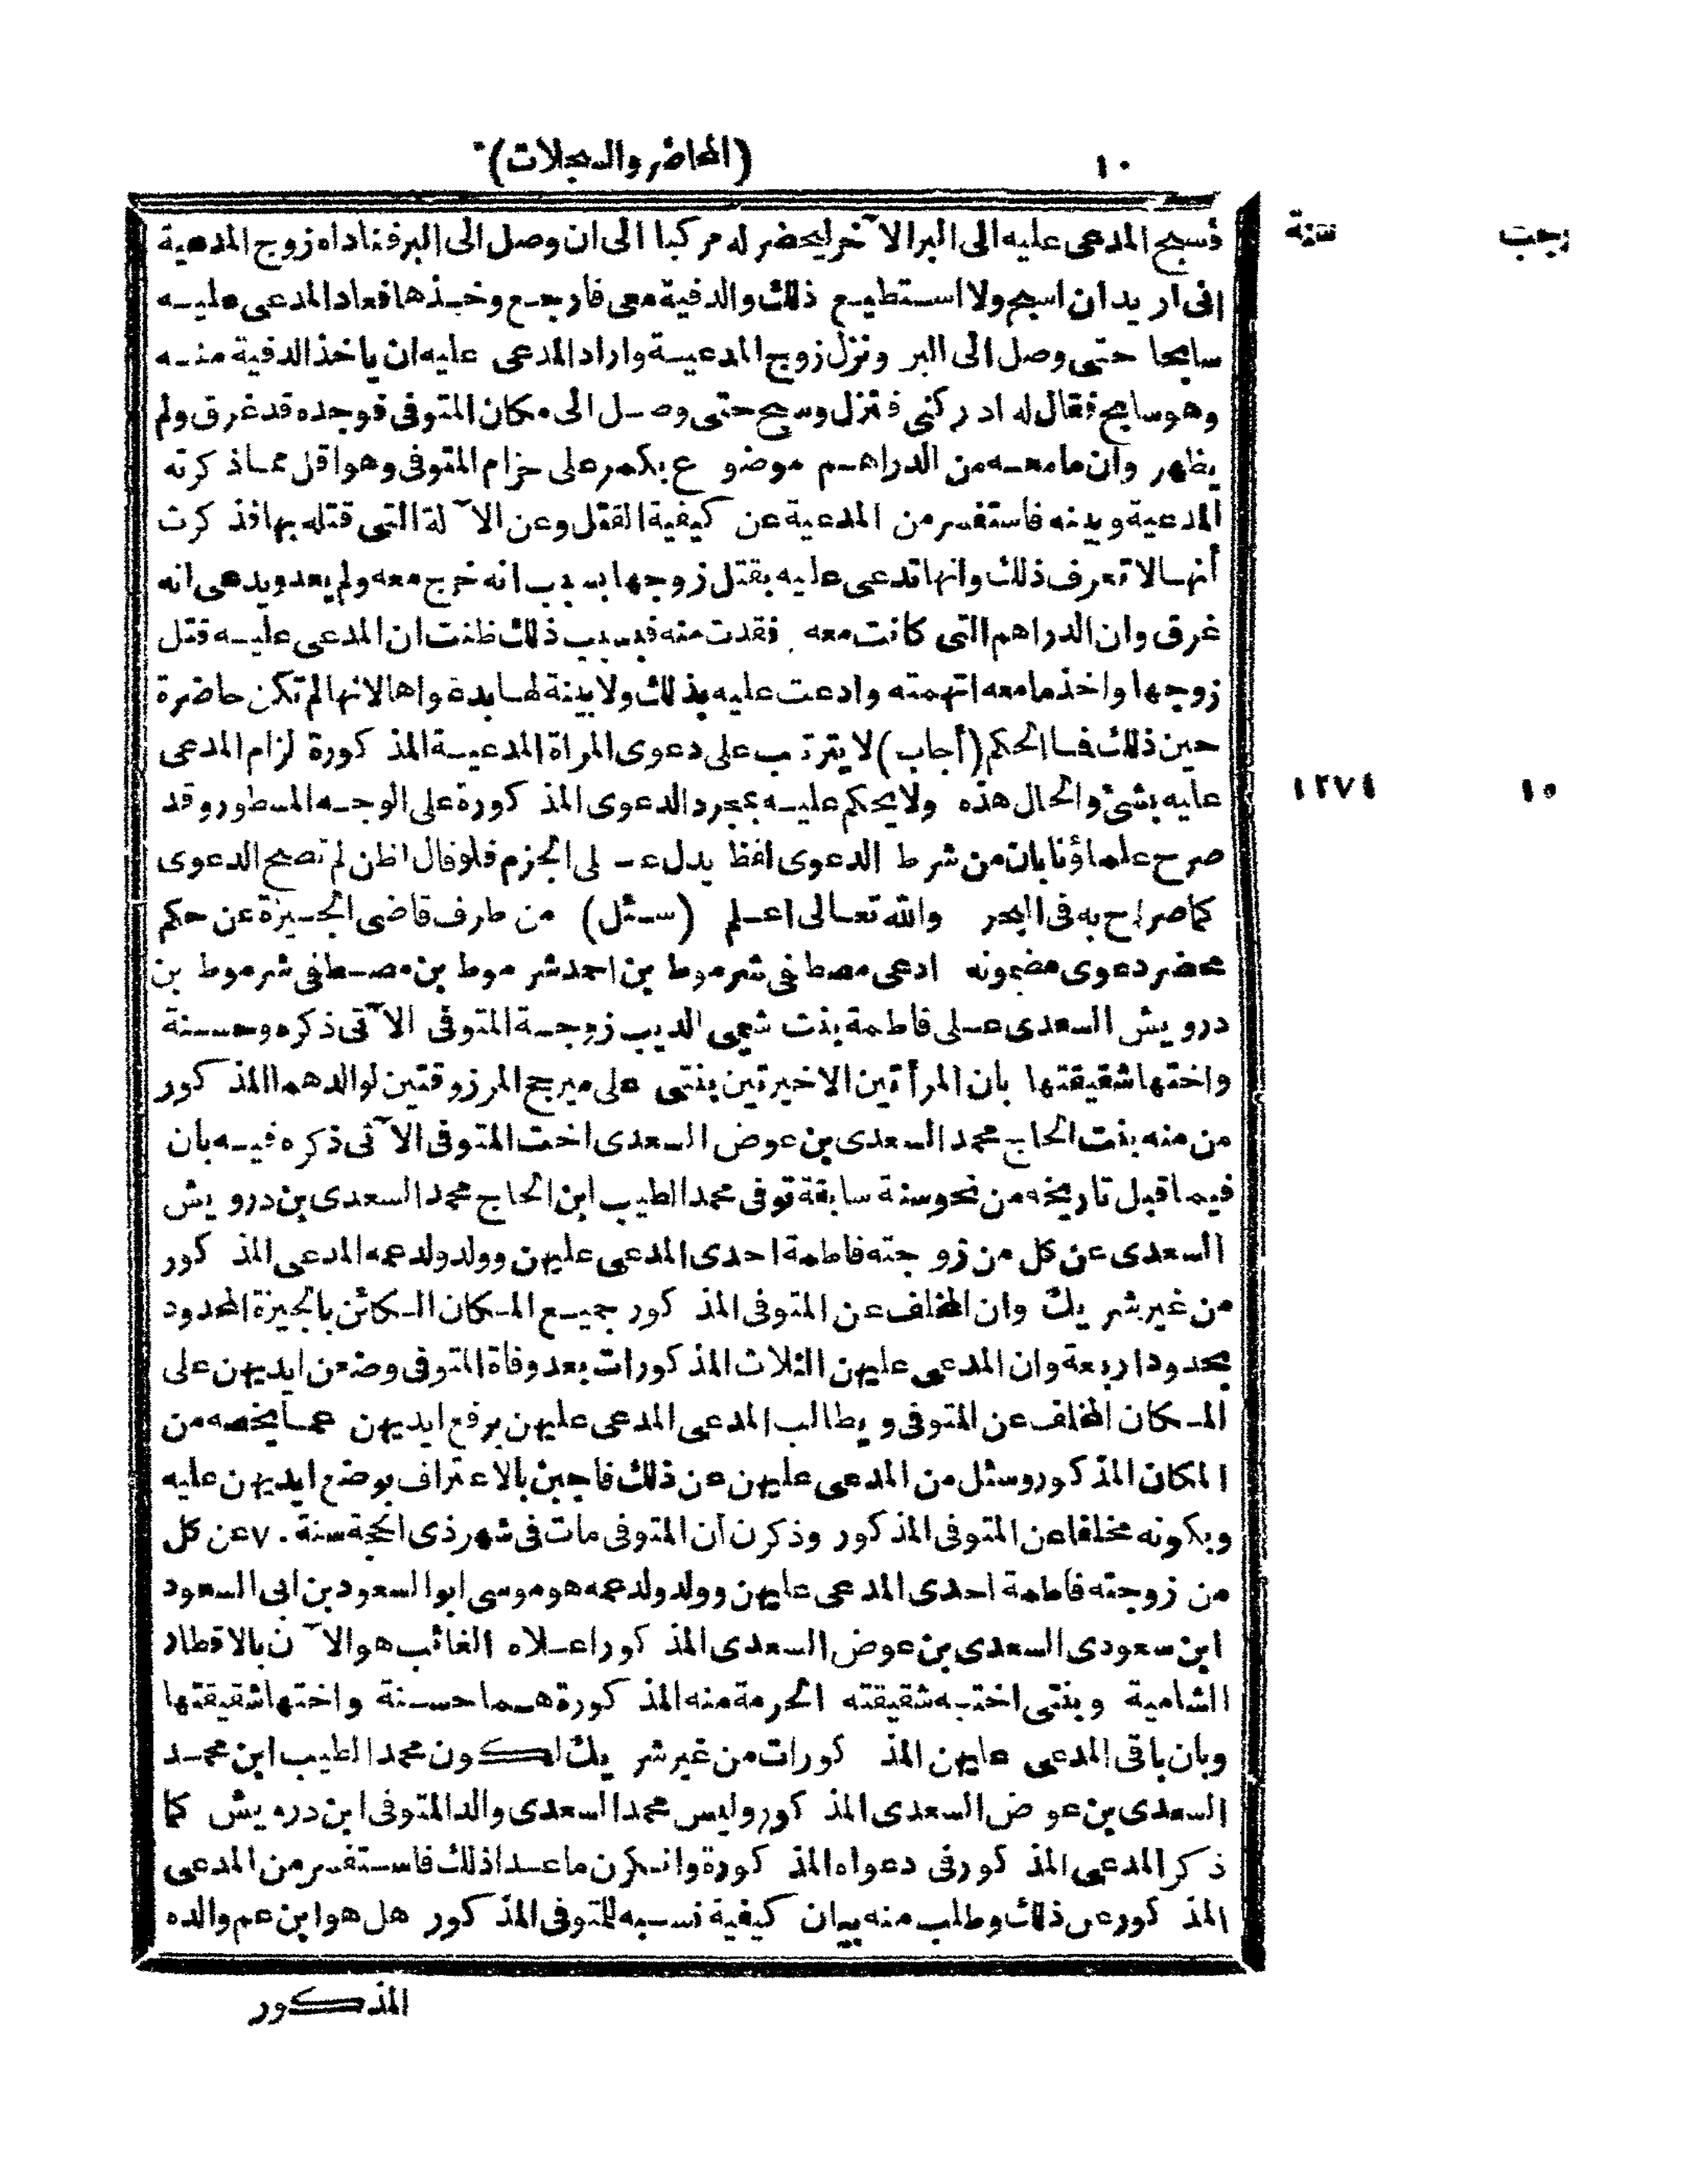 ١٠ (المحاضر والسجلات)
رجب سنة
فسبح المدعى عليه الى البر الآخر ليحضر له مركبا الى ان وصل الى البر فناداه زوج المدعية
انى اريد ان اسبح ولا استطيع ذلك والدفية معى فارجع وخذها فعاد المدعى عليه
سابحا حتى وصل الى البر ونزل زوج المدعية واراد المدعى عليه ان ياخذ الدفية منه
وهو سابح فقال له ادركنى فنزل وسبح حتى وصل الى مكان المتوفى فوجده قد غرق ولم
يظهر وان ما معه من الدراهم موضوع بكمر على حزام المتوفى وهو اقل مما ذكرته
المدعية وبينه فاستفسر من المدعية عن كيفية القتل وعن الآلة التى قتله بها فذكرت
أنها لا تعرف ذلك وانها تدعى عليه بقتل زوجها بسبب انه خرج معه ولم يعد ويدعى انه
غرق وان الدراهم التى كانت معه فقدت منه فبسبب ذلك ظنت ان المدعى عليه قتل
زوجها واخذ ما معه اتهمته وادعت عليه بذلك ولا بينة لها بدعواها لانها لم تكن حاضرة
حين ذلك فما الحكم (أجاب) لا يترتب على دعوى المراة المدعية المذكورة لزام المدعى
عليه بشئ والحال هذه ولا يحكم عليه بمجرد الدعوى المذكورة على الوجه المسطور وقد
١٠ ١٢٧٤
صرح علماؤنا بان من شرط الدعوى لفظ يدل على الجزم فلو قال اظن لم تصح الدعوى
كما صرح به فى البحر والله تعالى اعلم (سئل) من طرف قاضى الجيزة عن حكم
محضر دعوى مضمونه ادعى مصطفى شرموط بن احمد شرموط بن مصطفى شرموط بن
درويش السعدى على فاطمة بنت شيمى الديب زوجة المتوفى الآتى ذكره وحسنة
واختها شقيقتها بان المرأتين الاخيرتين بنتى على ميريح المرزوقتين لوالدهما المذكور
من منه بنت الحاج محمد السعدى بن عوض السعدى اخت المتوفى الآتى ذكره فيه بان
فيما قبل تاريخه من نحو سنة سابقة توفى محمد الطيب ابن الحاج محمد السعدى بن درويش
السعدى عن كل من زوجته فاطمة احدى المدعى عليهن وولد ولد عمه المدعى المذكور
من غير شريك وان المخلف عن المتوفى المذكور جميع المكان الكائن بالجيزة المحدود
بحدود اربعة وان المدعى عليهن الثلاث المذكورات بعد وفاة المتوفى وضعن ايديهن على
المكان المخلف عن المتوفى ويطالب المدعى المدعى عليهن برفع ايديهن عما يخصه من
المكان المذكور وسئل من المدعى عليهن عن ذلك فاجبن بالاعتراف بوضع ايديهن عليه
وبكونه مخلفا عن المتوفى المذكور وذكرن أن المتوفى مات فى شهر ذى الحجة سنة ٧٠ عن كل
من زوجته فاطمة احدى المدعى عليهن وولد ولد عمه هو موسى ابو السعود بن ابى السعود
ابن سعودى السعدى بن عوض السعدى المذكور اعلاه الغائب هو الآن بالاقطار
الشامية وبنتى اخته شقيقته الحرمة منه المذكورة هما حسنة واختها شقيقتها
وبان باقى المدعى عليهن المذكورات من غير شريك لكون محمد الطيب ابن محمد
السعدى بن عوض السعدى المذكور وليس محمد السعدى والد المتوفى ابن درويش كما
ذكر المدعى المذكور فى دعواه المذكورة وانكرن ما عدا ذلك فاستفسر من المدعى
المذكور عن ذلك وطلب منه بيان كيفية نسبه للمتوفى المذكور هل هو ابن عم والده
المذكور